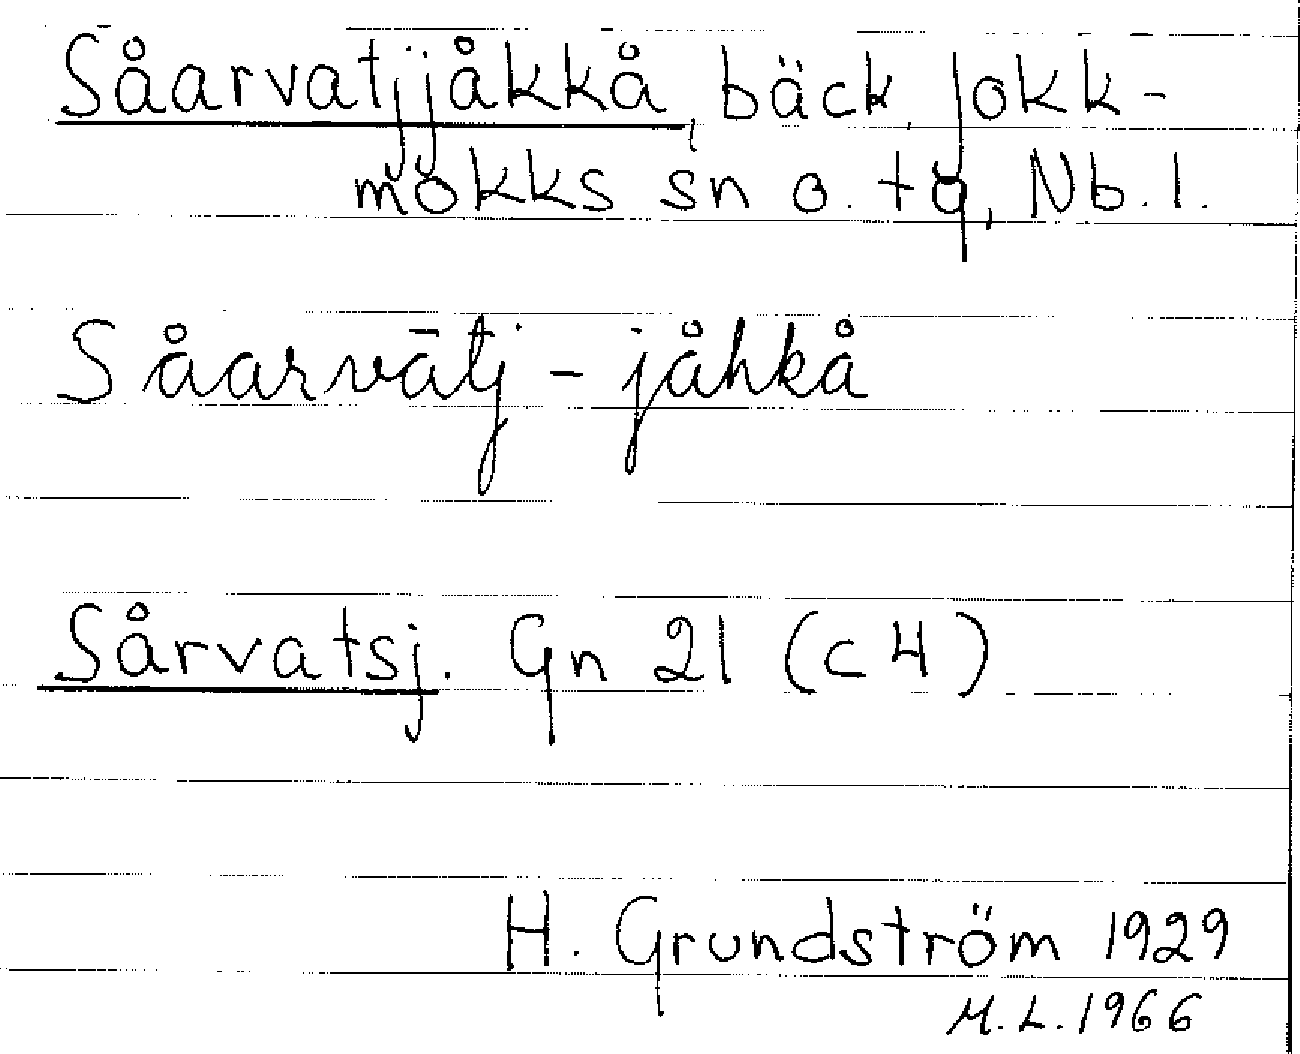 Såarvatjjåkkå, bäck, Jokk-
mokks sn o. tg, Nb. l.
Såarvātj - jåhkå
Sårvatsj. Gn 21 (c 4)
H. Grundström 1929
M.L. 1966